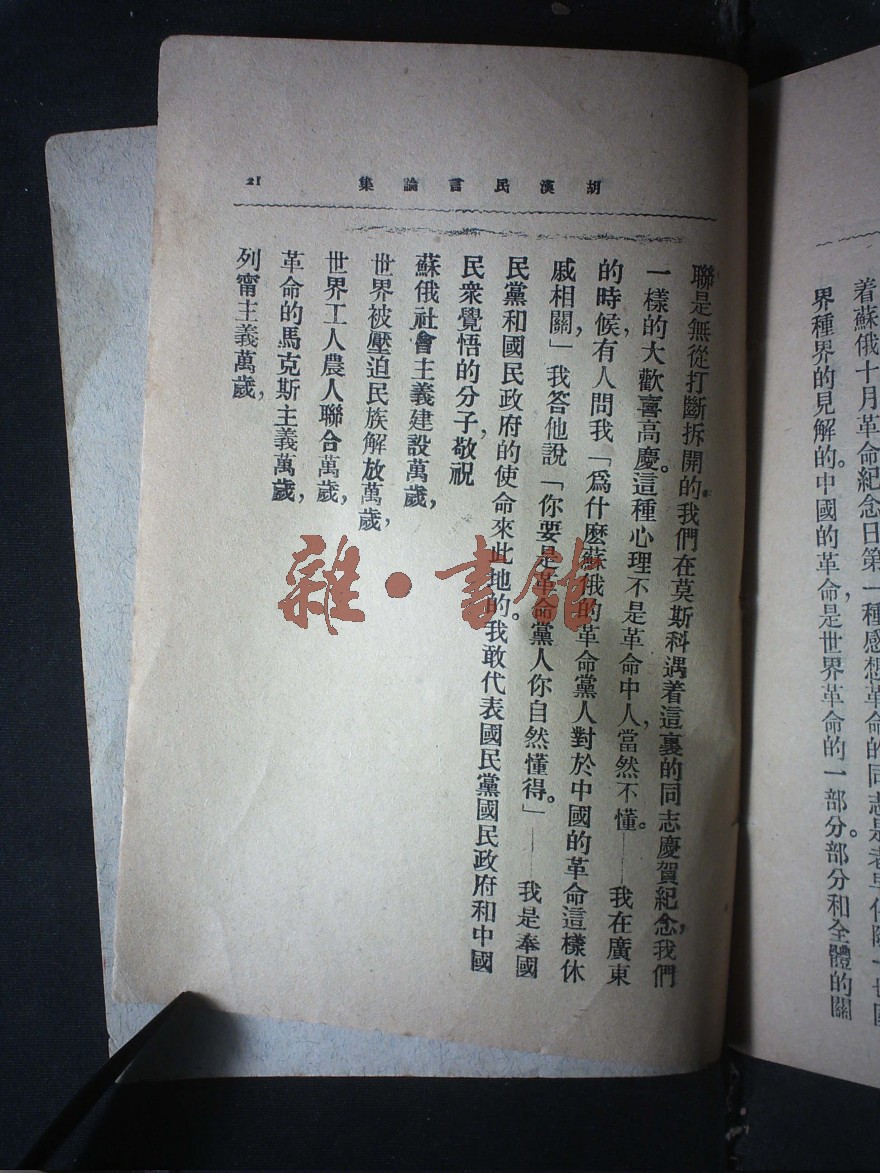 着蘇俄十月革命紀念日第一種感想革命的同志是老早
界種界的見解的。中國的革命，是世界革命的一部分。部分和全體的關
胡漢民言論集
21
聯是無從打斷拆開的。我們在莫斯科遇着這裏的同志慶賀紀念，我們
一樣的大歡喜高慶。這種心理不是革命中人，當然不懂。——我在廣東
的時候，有人問我「爲什麽蘇俄的革命黨人對於中國的革命這樣休
戚相關，」我答他說「你要是革命黨人你自然懂得。」——我是奉國
民黨和國民政府的使命來此地的。我敢代表國民黨國民政府和中國
民衆覺悟的分子，敬祝
蘇俄社會主義建設萬歲，
世界被壓迫民族解放萬歲，
世界工人農人聯合萬歲，
革命的馬克斯主義萬歲，
列甯主義萬歲，
雜·書館